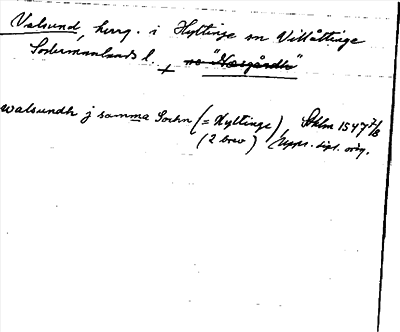 Valsund, herrg. i Hyltinge sn Villåttinge
Södermanlands l. + se "Näsgårdh"
Walsundh j samma Sochn (= Hyltinge), Sthlm 1547 7/8
(2 brev) Upps. dipl. orig.